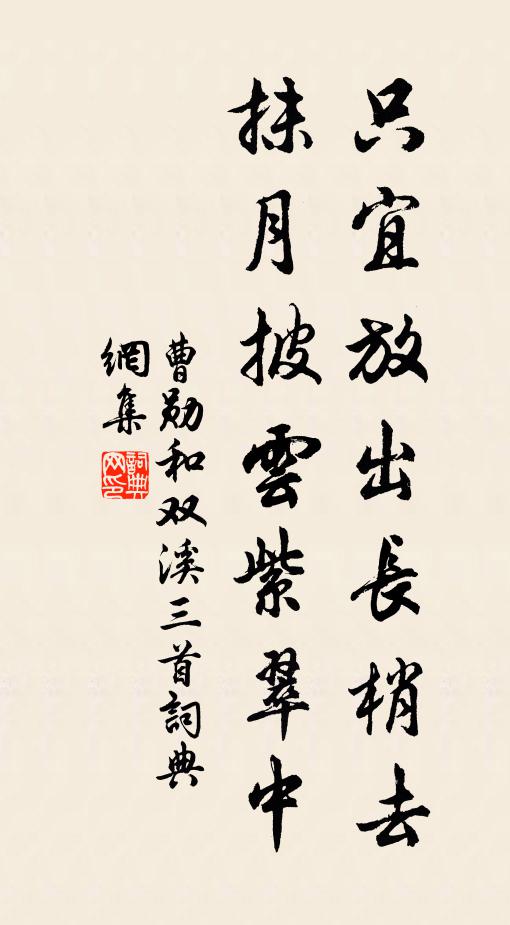 只宜放出長梢去
抹月披雲紫翠中
曹勛和双溪三首詞典
網集
詞典网印